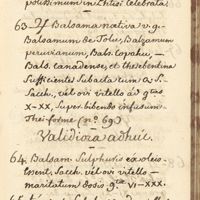 potissimum in Phtisi celebrata.
63. If Balsama nativa v.g.
Balsamum de Tolu, Balzamum
peruvianum, Bals. Copahu, —
Bals. Canadense, et therebentina
Sufficientes Subacta cum a: S.
Sacch., vel ovi vitello ad gttas
X–XX, Super bibendo infusum
Thei-forme (nº 69)
Validiora adhuc.
64. Balsam. Sulphuris ex oleo
Sacch., vel ovi vitello —
maritatum dosis gtta VI–XXX.